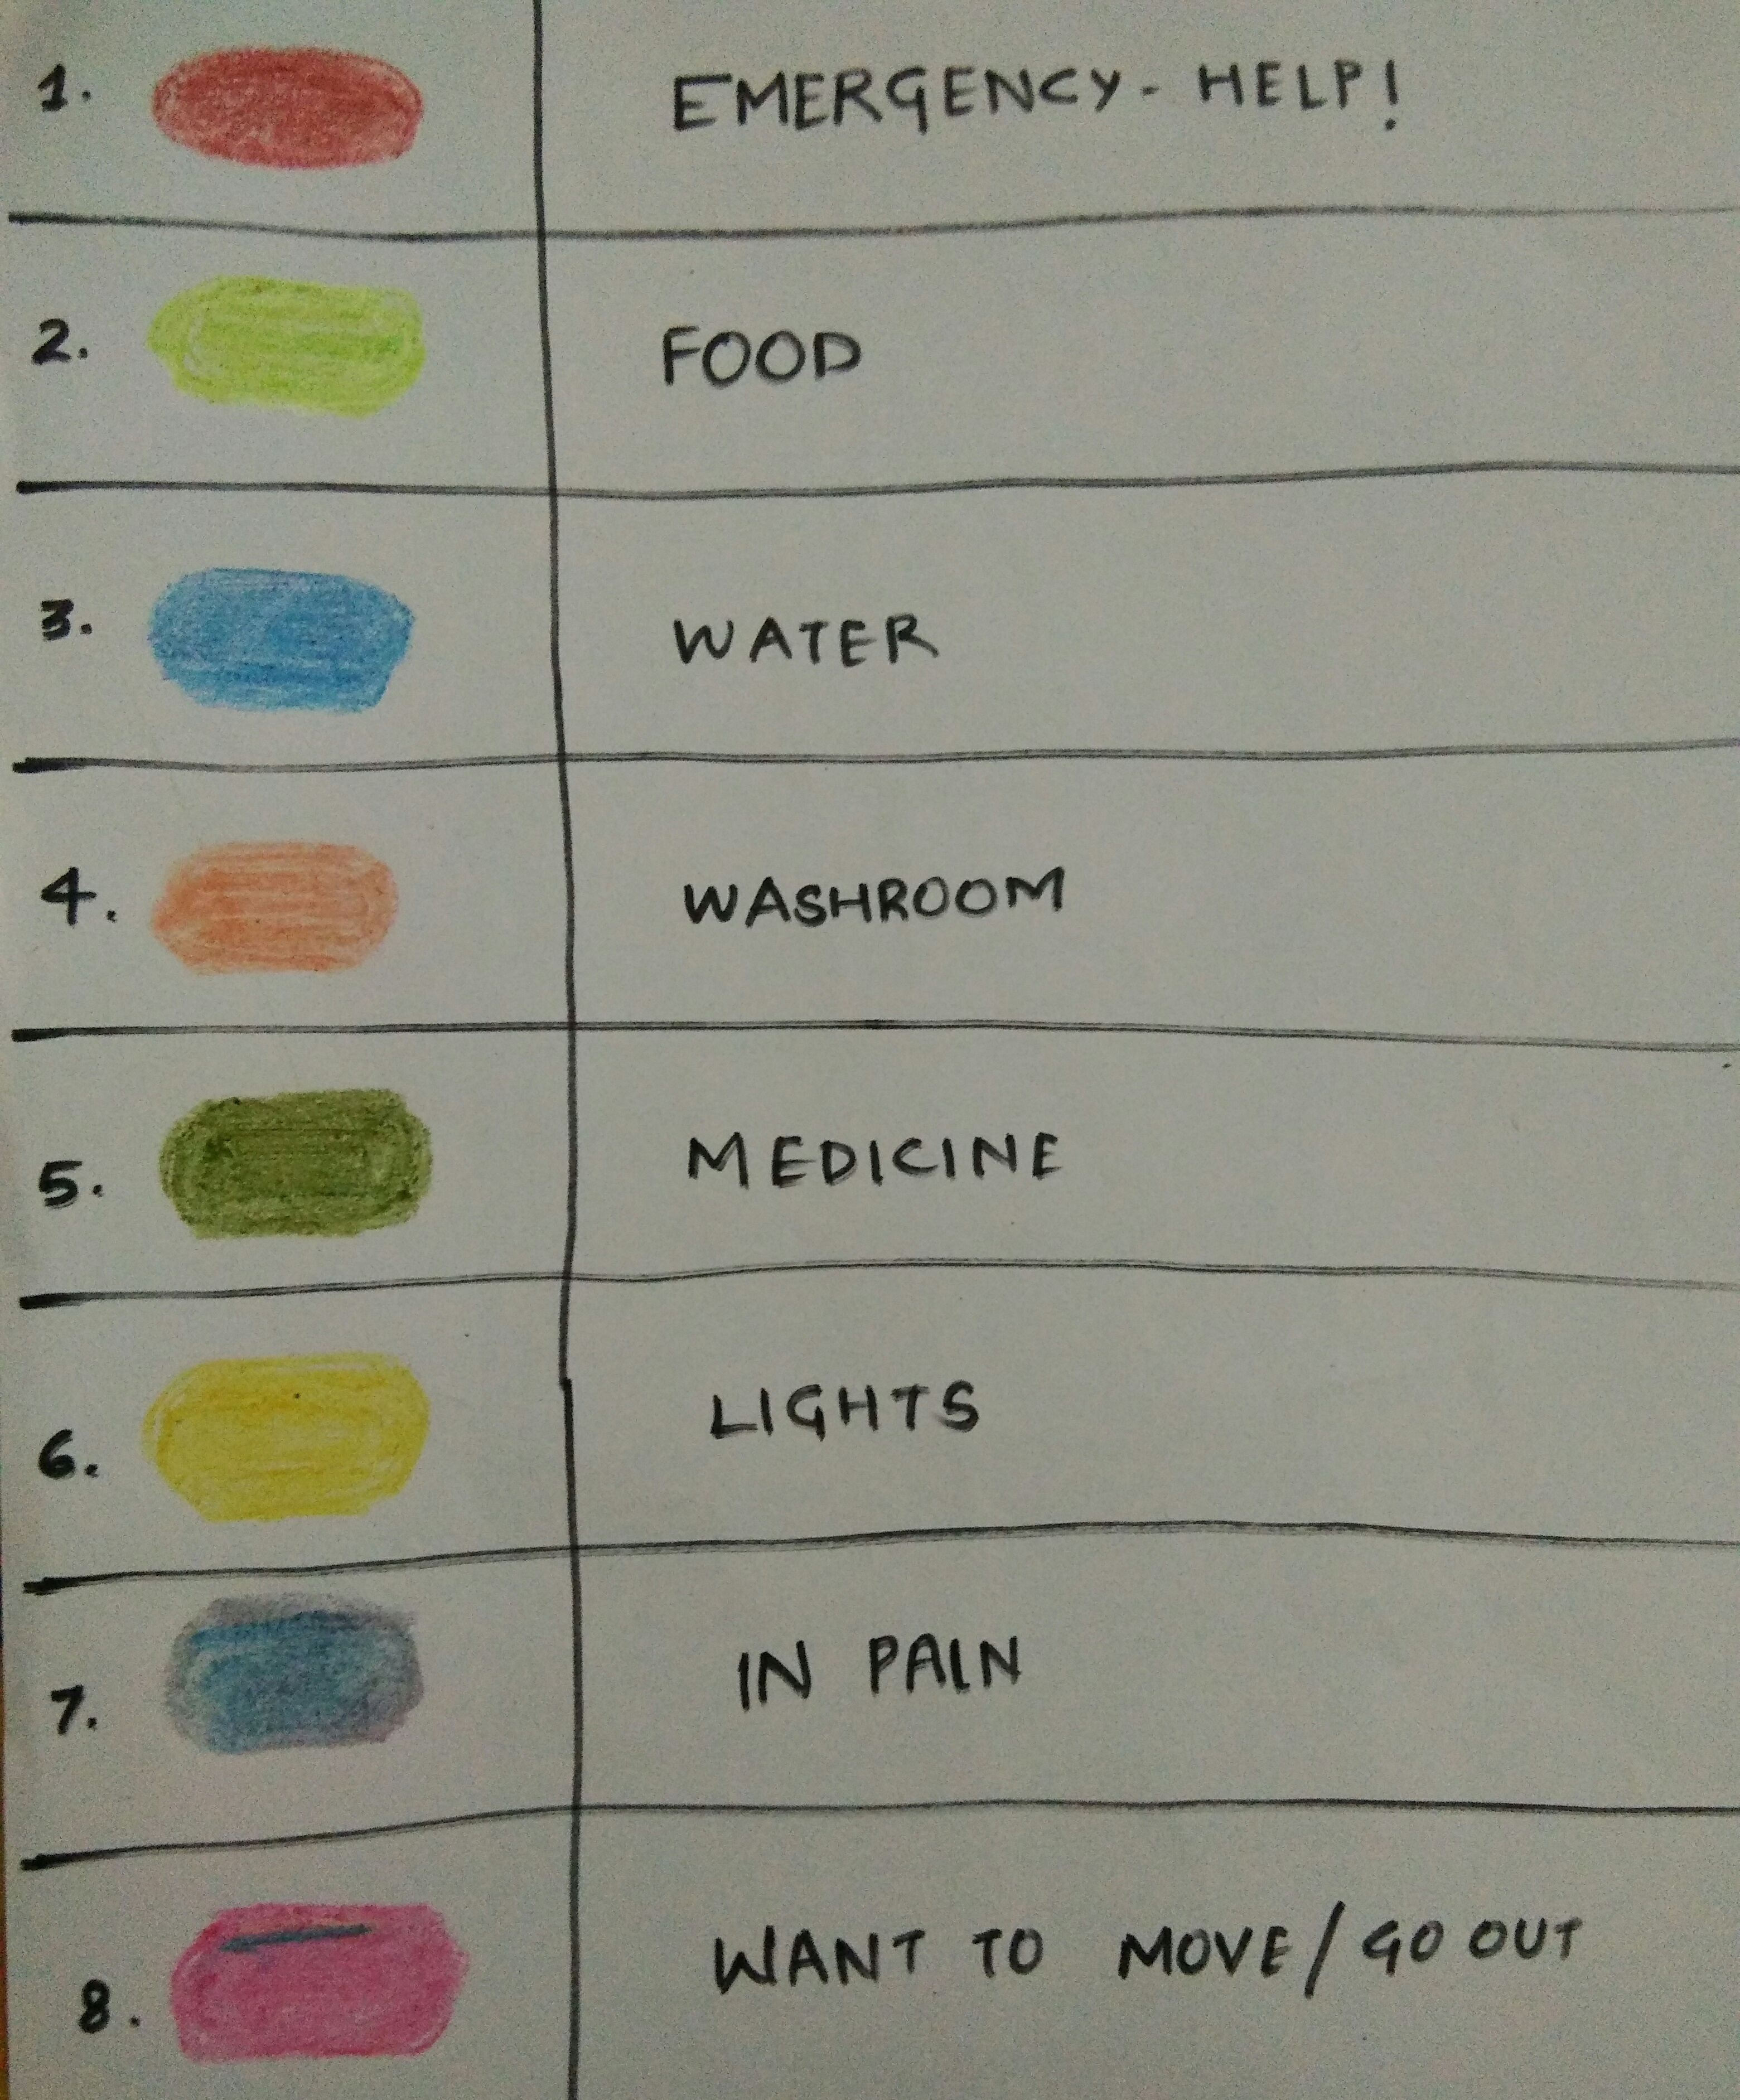 1. EMERGENCY - HELP!
2. FOOD
3. WATER
4. WASHROOM
5. MEDICINE
6. LIGHTS
7. IN PAIN
8. WANT TO MOVE/GO OUT